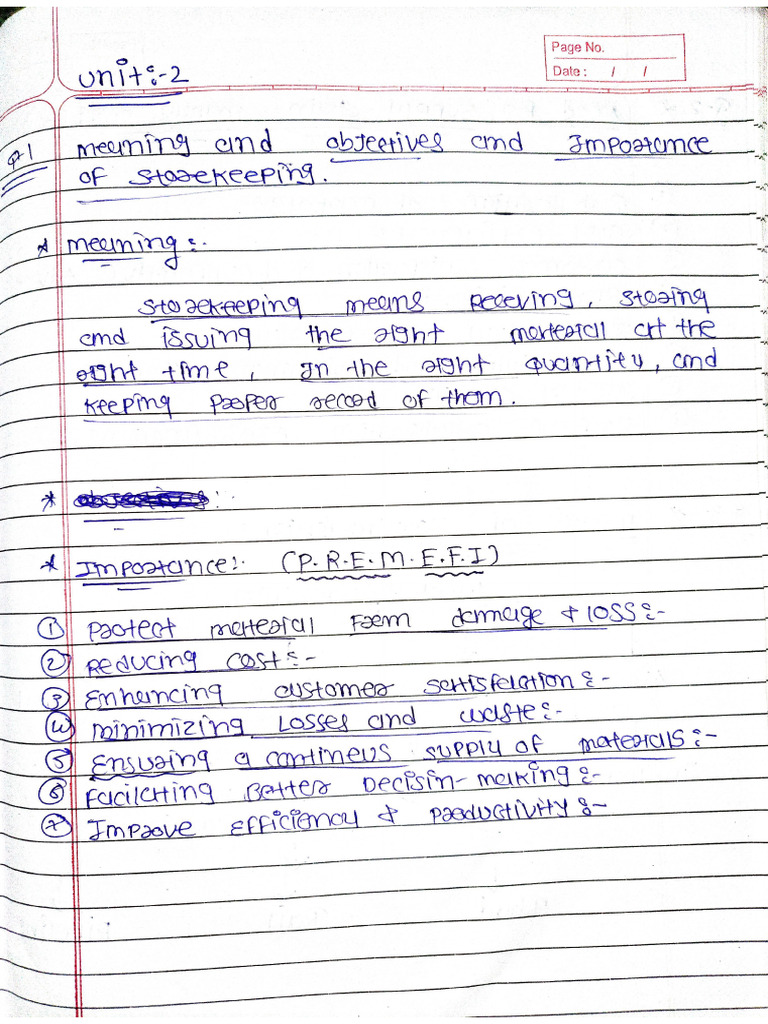 Page No.
Date: / /
Unit:-2
Q-1 Meaning and objectives and Importance
of storekeeping.
* Meaning:-
Storekeeping means Receving, storing
and issuing the right material at the
right time, In the right quantity, and
keeping proper record of them.
*
* Importance:- (P.R.E.M.E.F.I)
① Protect material from damage & loss:-
② Reducing cost:-
③ Enhancing customer satisfaction:-
④ Minimizing Losses and waste:-
⑤ Ensuring a contineus supply of materials:-
⑥ Facilating Better Decisin-making:-
⑦ Improve Efficiency & Productivity:-